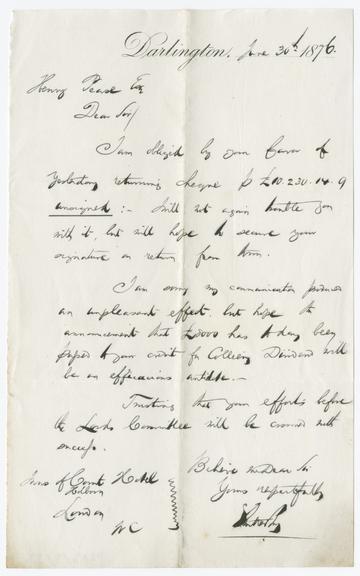 Darlington, June 30th 1876.
Henry Pease Esq
Dear Sir/
I am obliged by your favor of
yesterday returning cheque for £10.230.14.9
unsigned :- I will not again trouble you
with it, but will hope to secure your
signature on return from town.
I am sorry my communication produces
an unpleasant effect, but hope the
announcement that £3000 has to day been
passed to your credit for Colliery Dividend will
be an efficacious antidote.-
Trusting that your efforts before
the Lords Committee will be crowned with
success.
Believe me Dear Sir
Yours respectfully
Inns of Court Hotel
Holborn
London
WC